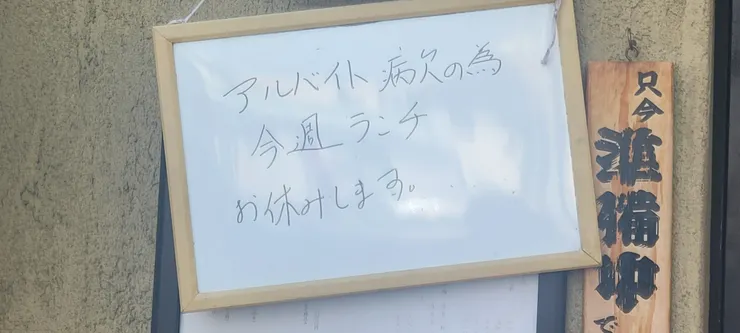 アルバイト 病欠の為
今週 ランチ
お休みします。
只今
準備中で